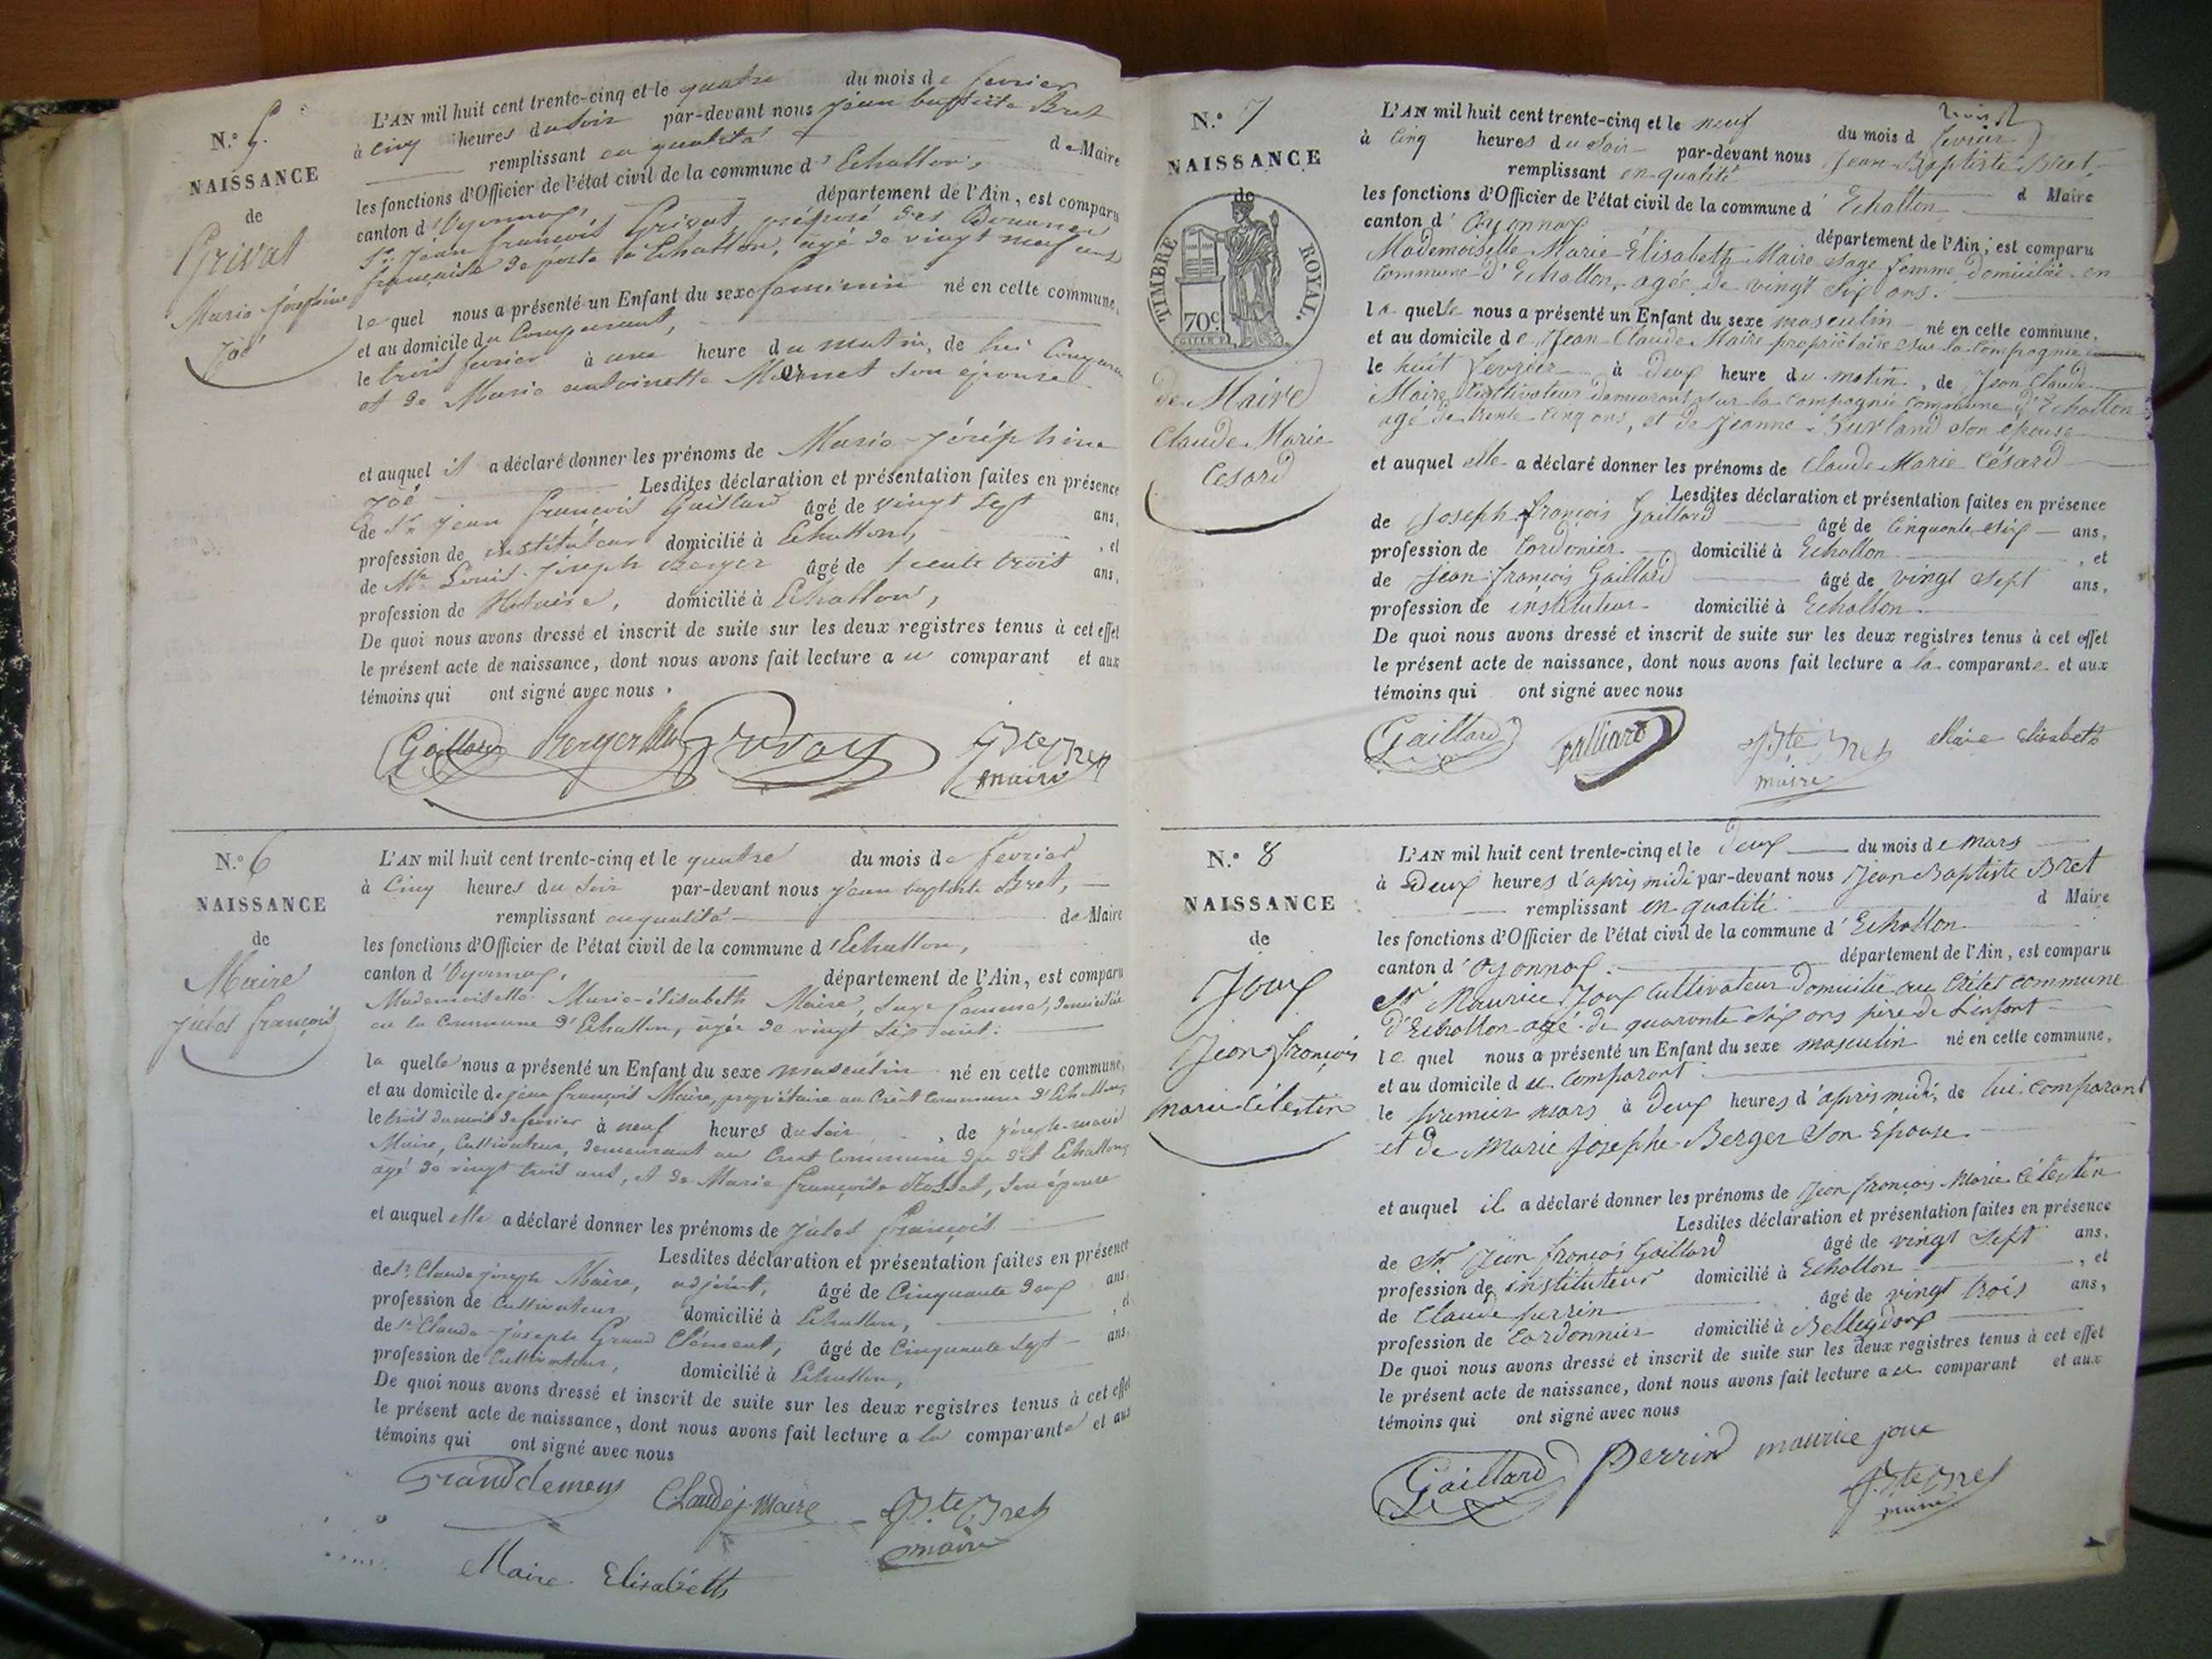 N.° 5.
NAISSANCE
de
Grivat
Marie joséphine
Zoé
L'AN mil huit cent trente-cinq et le quatre du mois de fevrier
à cinq heures du soir par-devant nous jean baptiste Bret
remplissant en qualité de Maire
les fonctions d'Officier de l'état civil de la commune d'Echallon,
canton d'Oyonnax, département de l'Ain, est comparu
Sr. jean françois Grivat, préposé des Douanes
françaises de poste à Echallon, agé de vingt neuf ans
lequel nous a présenté un Enfant du sexe feminin né en cette commune,
et au domicile du Comparant,
le trois fevrier à une heure du matin, de lui Comparant
et de Marie antoinette Mermet son épouse
et auquel il a déclaré donner les prénoms de Marie-joséphine
Zoé Lesdites déclaration et présentation faites en présence
de Sr. jean françois Gaillard âgé de vingt sept ans,
profession de instituteur domicilié à Echallon, , et
de Mr. Louis-joseph Berger âgé de trente trois ans,
profession de Notaire, domicilié à Echallon,
De quoi nous avons dressé et inscrit de suite sur les deux registres tenus à cet effet
le présent acte de naissance, dont nous avons fait lecture au comparant et aux
témoins qui ont signé avec nous.
Gaillard Berger Grivat Jn Bte Bret
maire
N.° 6
NAISSANCE
de
Maire
jules françois
L'AN mil huit cent trente-cinq et le quatre du mois de fevrier
à cinq heures du soir par-devant nous jean baptiste Bret,
remplissant en qualité de Maire
les fonctions d'Officier de l'état civil de la commune d'Echallon,
canton d'Oyonnax, département de l'Ain, est comparu
Mademoiselle Marie-élisabeth Maire, sage femme, domiciliée
en la Commune d'Echallon, agée de vingt six ans.
la quelle nous a présenté un Enfant du sexe masculin né en cette commune,
et au domicile de jean françois Maire, propriétaire au Crêt Commune d'Echallon,
le trois du mois de fevrier à neuf heures du soir, de joseph-marie
Maire, Cultivateur, demeurant au Cret Commune du dit Echallon,
agé de vingt trois ans, et de Marie françoise Rosset, son épouse
et auquel elle a déclaré donner les prénoms de jules françois
Lesdites déclaration et présentation faites en présence
de Sr. Claude joseph Maire, adjoint, âgé de Cinquante deux ans,
profession de Cultivateur domicilié à Echallon, , et
de Sr. Claude-joseph Grand Clément, âgé de Cinquante sept ans,
profession de Cultivateur, domicilié à Echallon,
De quoi nous avons dressé et inscrit de suite sur les deux registres tenus à cet effet
le présent acte de naissance, dont nous avons fait lecture a la comparante et aux
témoins qui ont signé avec nous
Grandclement Claude j. Maire Jn Bte Bret
maire
Maire Elisabeth
N.° 7
NAISSANCE
de
TIMBRE ROYAL.
70c.
de Maire
Claude Marie
Césard
L'AN mil huit cent trente-cinq et le neuf du mois d fevrier
à cinq heures du soir par-devant nous Jean-Baptiste Bret,
remplissant en qualité d Maire
les fonctions d'Officier de l'état civil de la commune d'Echallon
canton d'Oyonnax département de l'Ain, est comparu
Mademoiselle Marie Élisabeth Maire sage femme domiciliée en
commune d'Echallon, agée de vingt six ans.
la quelle nous a présenté un Enfant du sexe masculin né en cette commune,
et au domicile de Jean-Claude Maire propriétaire sur la Compagnie
le huit fevrier à deux heure du matin, de Jean Claude
Maire Cultivateur demeurant sur la compagnie commune d'Echallon
agé de trente cinq ans, et de Jeanne Burland son épouse
et auquel elle a déclaré donner les prénoms de Claude Marie Césard
Lesdites déclaration et présentation faites en présence
de Joseph françois Gaillard âgé de cinquante six ans,
profession de Cordonier domicilié à Echallon , et
de Jean françois Gaillard âgé de vingt sept ans,
profession de instituteur domicilié à Echallon.
De quoi nous avons dressé et inscrit de suite sur les deux registres tenus à cet effet
le présent acte de naissance, dont nous avons fait lecture a la comparante et aux
témoins qui ont signé avec nous
Gaillard Galliard Jn Bte Bret Maire Elisabeth
maire
N.° 8
NAISSANCE
de
Joux
Jean françois
Marie Célestin
L'AN mil huit cent trente-cinq et le deux du mois de mars
à Deux heures d'après midi par-devant nous Jean Baptiste Bret
remplissant en qualité d Maire
les fonctions d'Officier de l'état civil de la commune d'Echallon
canton d'Oyonnax. département de l'Ain, est comparu
Sr Maurice Joux Cultivateur Domicilié au Crétet commune
d'Echallon agé de quarante six ans père de l'enfant
le quel nous a présenté un Enfant du sexe masculin né en cette commune,
et au domicile du Comparant
le premier mars à deux heures d'après midi, de lui comparant
et de Marie Josephe Berger Son Épouse.
et auquel il a déclaré donner les prénoms de Jean françois Marie Célestin
Lesdites déclaration et présentation faites en présence
de Sr Jean françois Gaillard âgé de vingt sept ans,
profession de instituteur domicilié à Echallon , et
de Claude perrin âgé de vingt trois ans,
profession de Cordonnier domicilié à Belleydoux
De quoi nous avons dressé et inscrit de suite sur les deux registres tenus à cet effet
le présent acte de naissance, dont nous avons fait lecture au comparant et aux
témoins qui ont signé avec nous
Gaillard Perrin maurice joux
Jn Bte Bret
maire